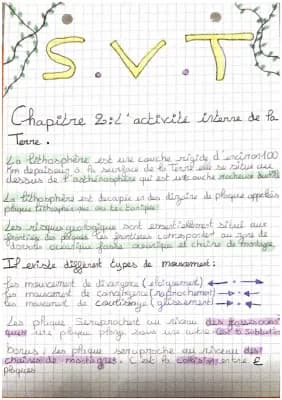 S.V.T
Chapitre 2: L'activité interne de la
Terre.
La lithosphère est une couche rigide d'environ 100
Km depaiseur à la surface de la Terre elle se situe au
dessus de l'asthénosphère qui est une couche
La lithosphère est decoupée en dizaine de plaque appelés
plaque lithospherique ou tectonique.
Les risques géologique sont essentiellement situé aux
frontières des plaques. Les frontières correspondent au zone de
dorsale océanique fosse océanique et chaine de montagne.
Il existe différent types de mouvement:
Les mouvement de divergence (eloignement)
Les mouvement de convergence (raprochement)
Les mouvement de coulissage (glissement)
Les plaque Seraprochent au niveau des fosses océani
ques une plaque plonge sous une autre c'est la Subduction
bonus: les plaque seraproche au niveau des
chaines de montagnes. C'est la collision entre 2
plaques